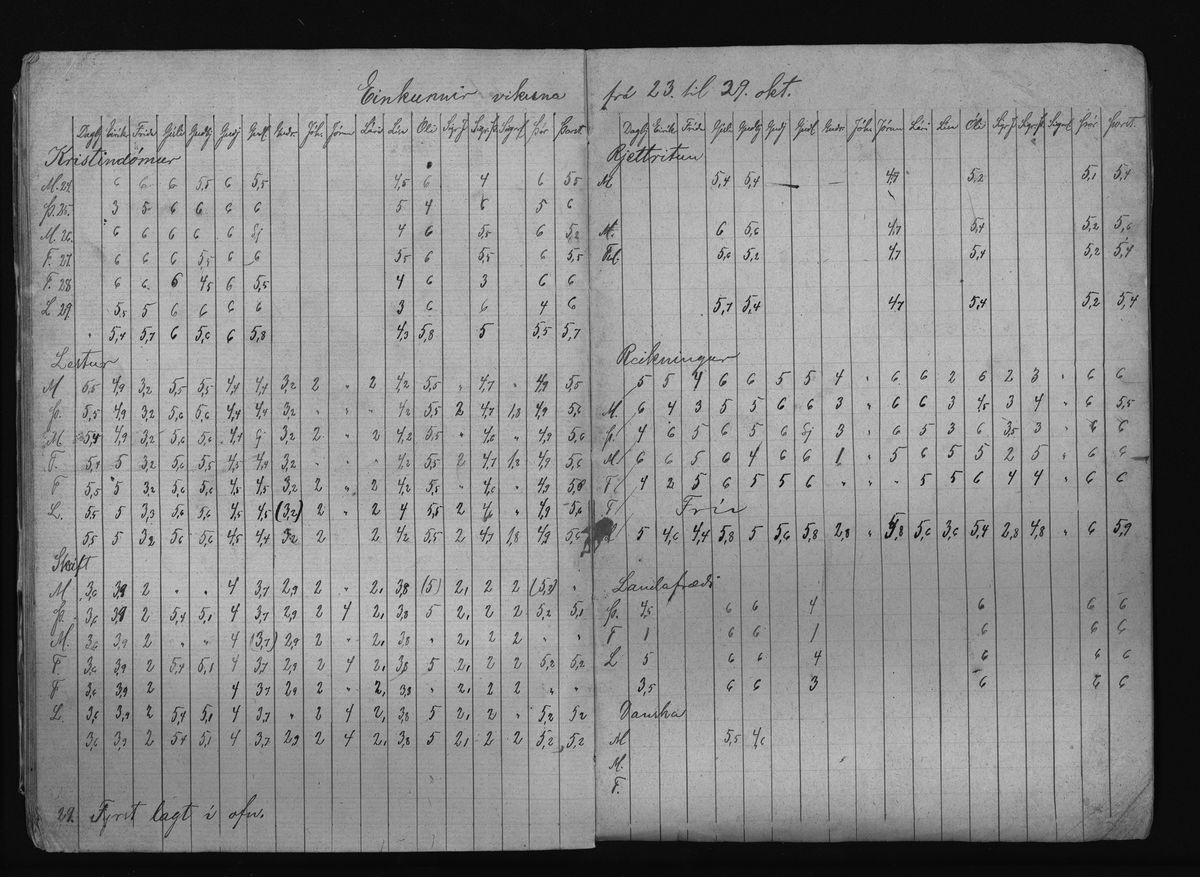 Einkunnir vikuna
Dagbj Eirík Fríða Gísli Guðbj Guðj Guðl Guðr Jóh. Jórun Lári Lin Óli Sigr.J Sigr.Þ Sigrl Þór Þorst.
Kristindómur
M. 24. 6 6 6 5,5 6 5,5 4,5 6 4 6 5,5
Þ. 25. 3 5 6 6 6 6 5 4 6 5 6
M. 26. 6 6 6 6 6 4 6 5,5 6 5,2
F. 27 6 6 6 5,5 6 6 5,5 6 5,5 6 5,5
F. 28 6 6 6 4,5 6 5,5 4 6 3 6 6
L 29 5,5 5 6 6 6 6 3 6 6 4 6
5,4 5,7 6 5,6 6 5,8 4,3 5,8 5 5,5 5,7
Lestur
M 5,5 4,9 3,2 5,5 5,5 4,4 4,4 3,2 2 " 2 4,2 5,5 " 4,7 " 4,9 5,5
Þ. 5,5 4,9 3,2 5,6 5,6 4,4 4,4 3,2 " " " 4,2 5,5 2 4,7 1,8 4,9 5,6
M. 5,4 4,9 3,2 5,6 5,6 4,4 3,2 2 " 2 4,2 5,5 " 4,6 " 4,9 5,6
F. 5,4 5 3,2 5,6 5,5 4,5 4,9 3,2 " " " 4,2 5,5 2 4,7 1,8 4,9 5,6
F 5,5 5 3,2 5,6 5,6 4,5 4,5 3,2 2 " 2 4,2 5,5 " 4,6 " 4,9 5,8
L. 5,5 5 3,3 5,6 5,6 4,5 4,5 (3,2) 2 " 2 4 5,5 2 4,6 " 4,9 5,6
5,5 5 3,2 5,6 5,6 4,5 4,4 3,2 2 2 4,2 5,5 2 4,7 1,8 4,9 5,6
Skrift
M 3,6 3,9 2 " " 4 3,7 2,9 2 " 2, 3,8 (5) 2, 2 2 (5,2) "
Þ. 3,6 3,9 2 5,4 5,1 4 3,7 2,9 2 4 2, 3,8 5 2, 2 2 5,2 5,1
M. 3,6 3,9 2 " " 4 (3,7) 2,9 2 " 2, 3,8 " 2, 2 2 " "
F. 3,6 3,9 2 5,4 5,1 4 3,7 2,9 2 4 2, 3,8 5 2, 2 2 5,2 5,2
F 3,6 3,9 2 4 3,7 2,9 2 " 2, 3,8 " 2, 2 2 " "
L. 3,6 3,9 2 5,4 5,1 4 3,7 " 2 4 2, 3,8 5 2, 2 " 5,2 5,2
3,6 3,9 2 5,4 5,1 4 3,7 2,9 2 4 2, 3,8 5 2, 2 2 5,2 5,2
29. Fyrst lagt í ofn.
frá 23. til 29. okt.
Dagbj Eirík Fríða Gísli Guðbj Guðj Guðl Guðr Jóh Jórun Lári Lin Óli Sigr.J Sigr.Þ. Sigrl Þór Þorst.
Rjettritun
M 5,4 5,4 4,7 5,2 5,1 5,4
M. 6 5,6 4,7 5,4 5,2 5,6
5,6 5,2 4,7 5,4 5,2 5,4
5,7 5,4 4,7 5,4 5,2 5,4
Reikningur
5 5 4 6 6 5 5 4 " 6 6 2 6 2 3 " 6 6
M. 6 4 3 5 5 6 6 3 " 6 6 3 4,5 3 4 " 6 5,5
Þ. 4 6 5 6 5 6 3 " 6 5 3 6 3,5 3 " 6 6
M 6 6 5 6 4 6 6 1 " 5 6 5 5 2 5 " 6 6
F. 4 2 5 6 5 5 6 " " " 5 5 6 4 4 " 6 6
F Frí
5 4,6 4,4 5,8 5 5,6 5,8 2,8 " 5,8 5,6 3,6 5,4 2,8 4,8 " 6 5,9
Landafræði
Þ. 4,5 6 6 4 6 6 6
F 1 6 6 1 6 6 6
L 5 6 6 4 6 6 6
3,5 6 6 3 6 6 6
Danska
M 5,5 4,6
M.
F.